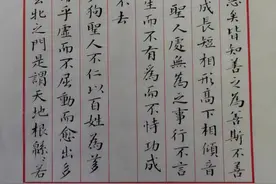 惡矣皆知善之為善斯不善
成長短相形高下相傾音
聖人處無為之事行不言
生而不有為而不恃功成
不去
狗聖人不仁以百姓為芻
乎虛而不屈動而愈出多
牝之門是謂天地根緜〻若